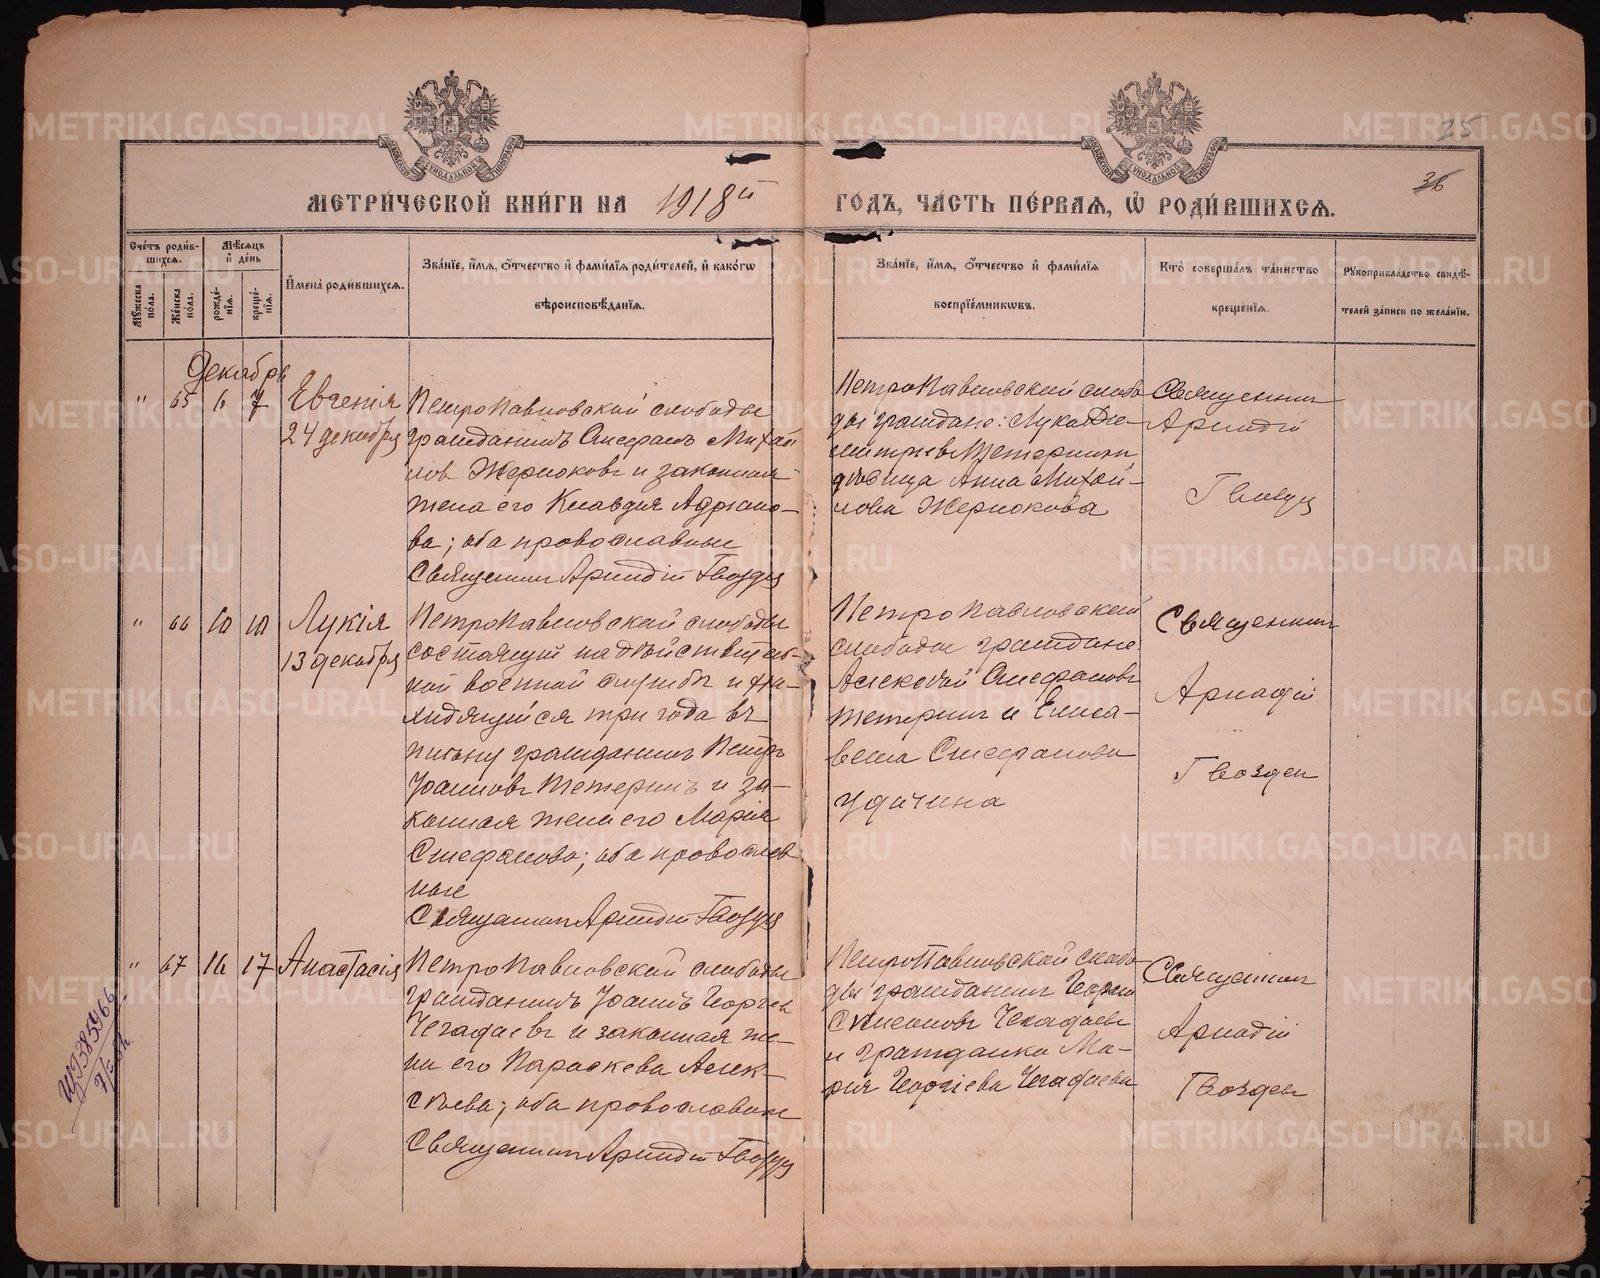 METRIKI.GASO-URAL.RU
25
36
МЕТРИЧЕСКОЙ КНИГИ НА 1918й
ГОДЪ, ЧАСТЬ ПЕРВАЯ, Ѡ РОДИВШИХСЯ.
Счетъ родив-
шихся.
Мѣсяцъ
и день
Мужеска пола.
Женска пола.
рожде-
нія.
креще-
нія.
Имена родившихся.
Званіе, имя, отчество и фамилія родителей, и какогѡ
вѣроисповѣданія.
Званіе, имя, отчество и фамилія
воспріемникѡвъ.
Кто совершалъ таинство
крещенія.
Рукоприкладство свидѣ-
телей записи по желанію.
Декабрь
" 65 6 7
Евгенія
24 декабря
Петропавловской слободы
гражданинъ Стефанъ Михай
ловъ Жерноковъ и законная
жена его Клавдія Адріано-
ва; оба православные
Священникъ Аркадій Гвоздец
Петропавловской слобо
ды граждане: Лука Ди-
митріевъ Тетеринъ и
дѣвица Анна Михай-
лова Жернокова
Священникъ
Аркадій
Гвоздец
" 66 10 10
Лукія
13 декабря
Петропавловской слободы
состоящій на дѣйствитель-
ной военной службѣ и на-
ходящійся три года въ
плѣну гражданинъ Петръ
Іоанновъ Тетеринъ и за-
конная жена его Марія
Стефанова; оба православ
ные
Священникъ Аркадій Гвоздец
Петропавловской
слободы граждане
Алексѣй Стефановъ
Тетеринъ и Елиса-
вета Стефанова
Удачина
Священникъ
Аркадій
Гвоздец
" 67 16 17
Анастасія
Петропавловской слободы
гражданинъ Іоаннъ Георгіев
Чегадаевъ и законная же-
на его Параскева Алек-
сѣева; оба православные
Священникъ Аркадій Гвоздец
Петропавловской слобо
ды гражданинъ Георгій
Чегадаевъ
и гражданка Ма-
рія Георгіева Чегадаева
Священникъ
Аркадій
Гвоздец